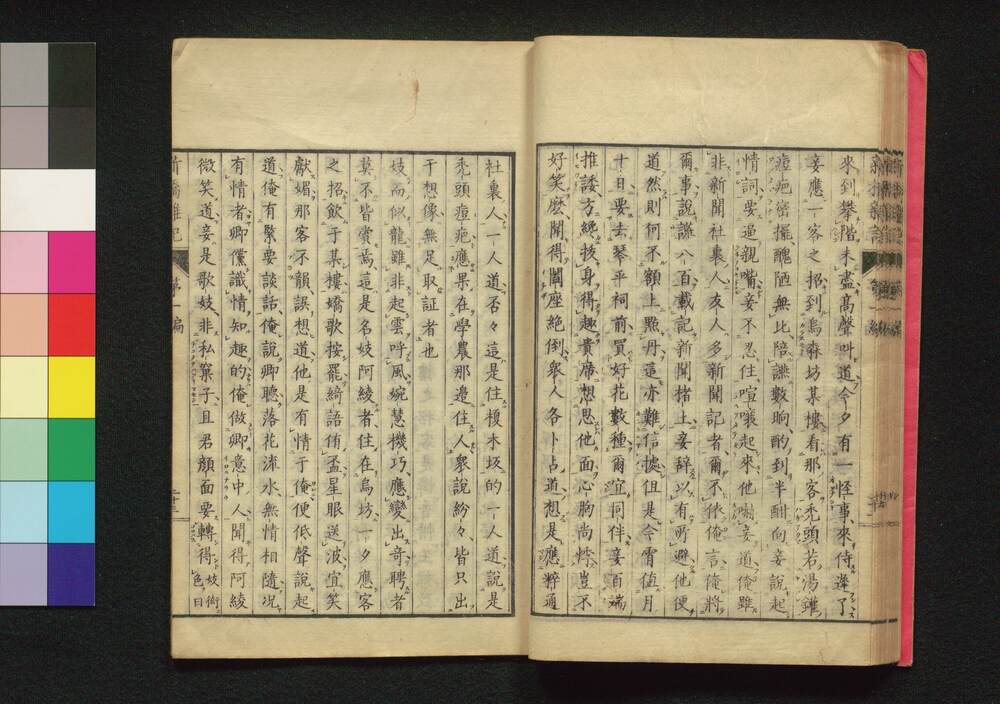 來到攀階未盡高聲叫道今夕有一怪事來侍違了
妾應一客之招到烏森坊某樓看那客禿頭若湯鑵
痘疤密擺醜陋無比陪讌數晌酌到半酣向妾說起
情詞要過親嘴妾不忍住喧嚷起來他嚇妾道俺雖
非新聞社裏人友人多新聞記者爾不依俺言俺將
爾事說讒八百載記新聞揩上妾辭以有所避他便
道然則何不額上點丹這亦難信據但是今宵值月
十日要去琴平祠前買好花數種爾宜同伴妾百端
推諉方纔拔身得趣貴席想思他面心胸尚悸豈不
好笑麽聞得闔座絶倒衆人各卜占道想是應粹通
社裏人一人道否々這是住榎木坂的一人道說是
禿頭痘疤應果在學農那邉住人衆說紛々皆只出
于想像無足取証者也
妓而似龍雖非起雲呼風婉慧機巧應變出奇聘者
莫不皆賞焉這是名妓阿綾者住在烏坊一夕應客
之招飲于某樓嬌歌按罷綺語侑盃星眼送波宜笑
獻媚那客不韻誤想道他是有情于俺便低聲說起
道俺有緊要談話俺說卿聽落花流水無情相隨况
有情者卿儻識情知趣的俺做卿意中人聞得阿綾
微笑道妾是歌妓非私窠子且君顔面要轉得妓街色曰
新橋雜記
第一編
二十三